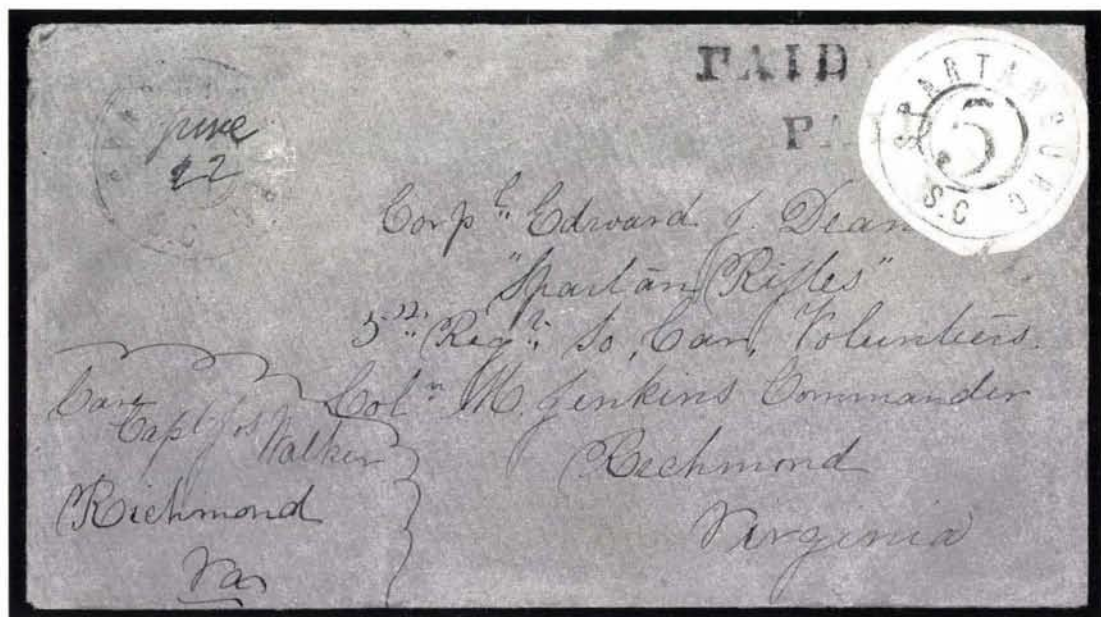 PAID
SPARTANBURG
5
S.C
PA
June
22
Corpˡ Edward J. Dean
"Spartan Rifles"
5th Regt So, Car, Volunteers.
Coln M. Jenkins Commander
Richmond
Virginia
Care
Capt Jos Walker
Richmond
Va